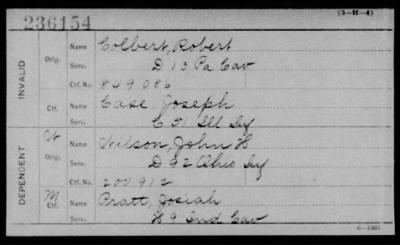 (3-H-4)
236154
INVALID
Orig. Name Colbert, Robert
Serv. D 13 Pa Cav
Ctf. No. 849,086
Ctf. Name Case Joseph
Serv. C 51 Ill Iy
DEPENDENT
W Orig. Name Wilson, John H
Serv. D 92 Ohio Iy
Ctf. No. 200,912
M Ctf. Name Pratt, Josiah
Serv. H 9 Ind Cav